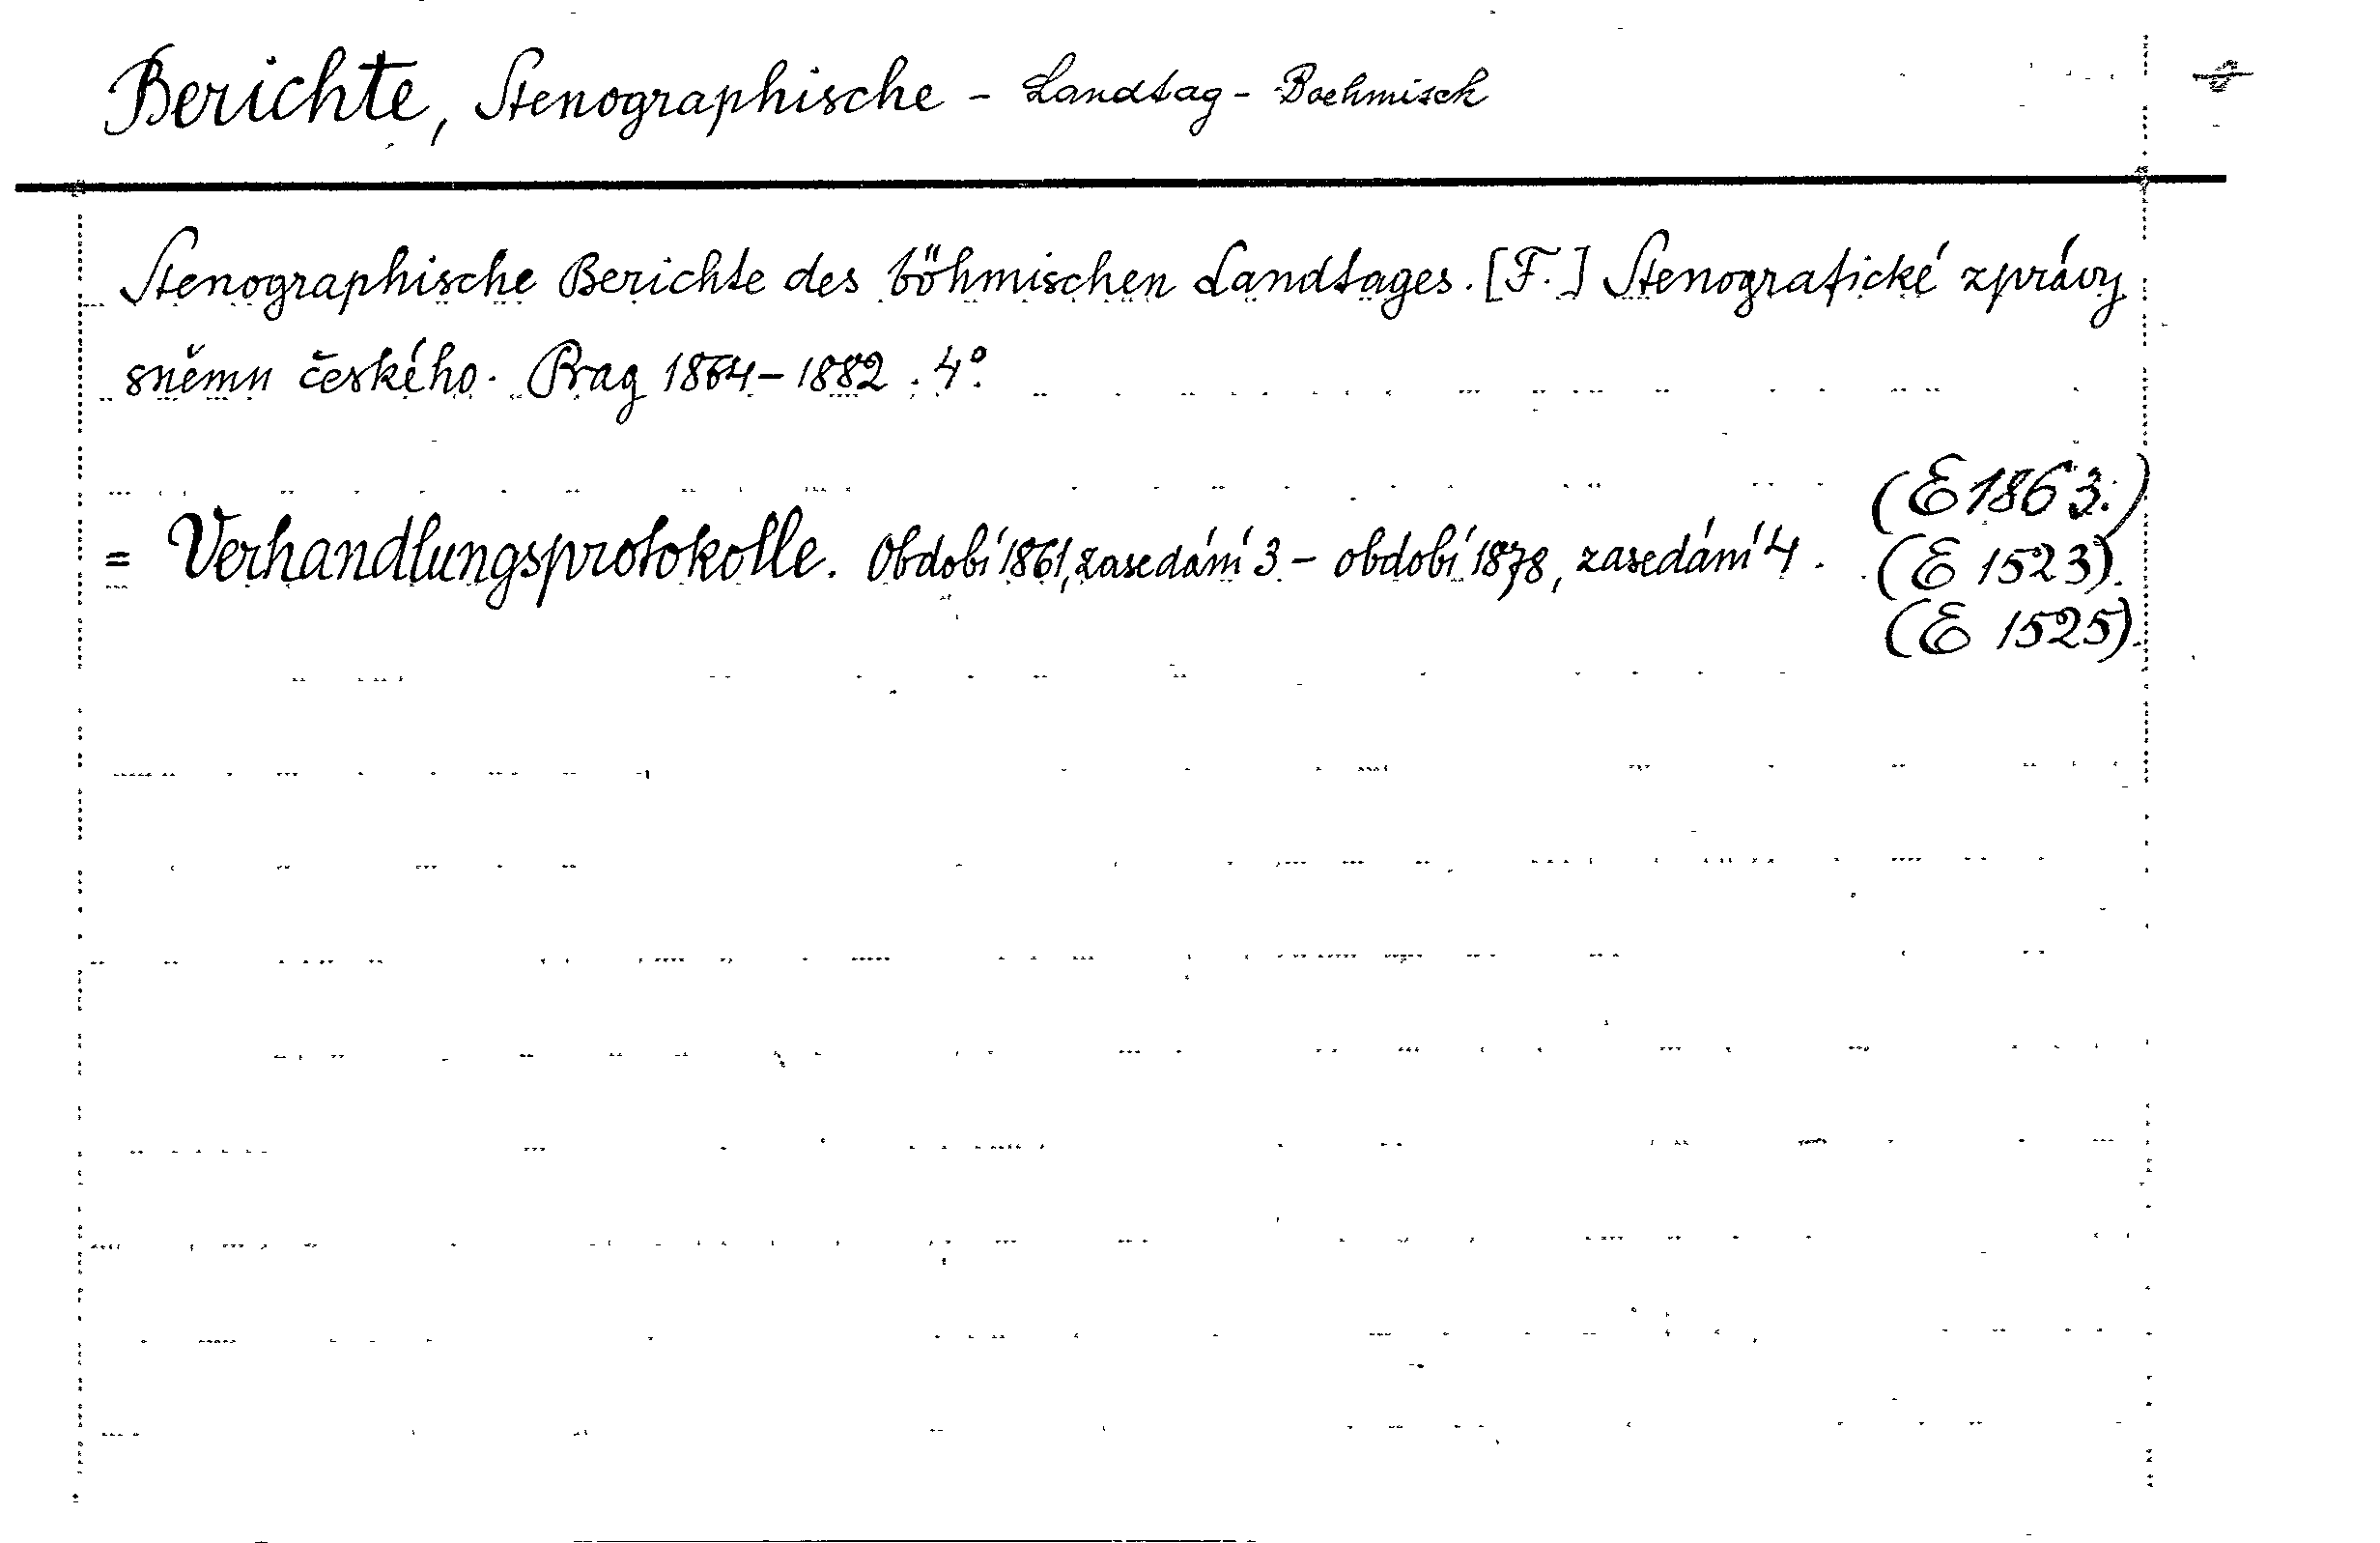 Berichte, Stenographische - Landtag - Boehmisch
Stenographische Berichte des böhmischen Landtages. [F.] Stenografické zprávy
sněmu českého. Prag 1864-1882. 4°.
(E 1863.)
= Verhandlungsprotokolle. Období 1861, zasedání 3 - období 1878, zasedání 4. (E 1523).
(E 1525).